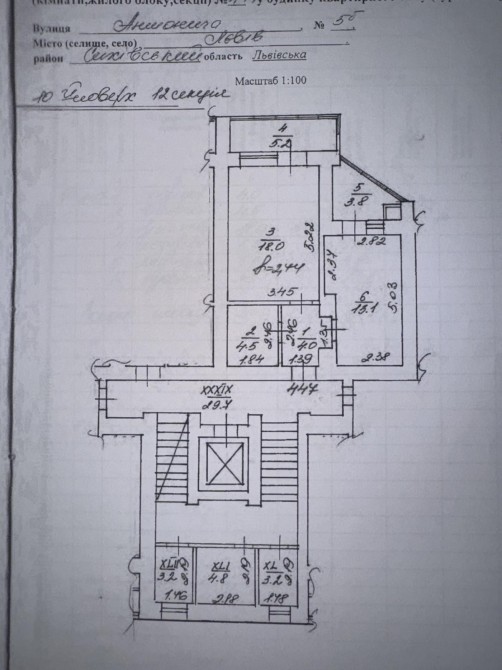 Вулиця Антонича, № 5б
Місто (селище, село) Львів
район Сихівський область Львівська
Масштаб 1:100
10 поверх 12 секція
4
5.2
5
3.8
3
18.0
5.22
2.82
h=2,44
2.37
6
13.1
5.03
3.45
2
4.5
2.46
1
4.0
2.46
1.35
1.84
1.39
2.38
447
XXXIX
29.7
XLII
3.2
XLI
4.8
XL
3.2
1.46
2.98
1.48